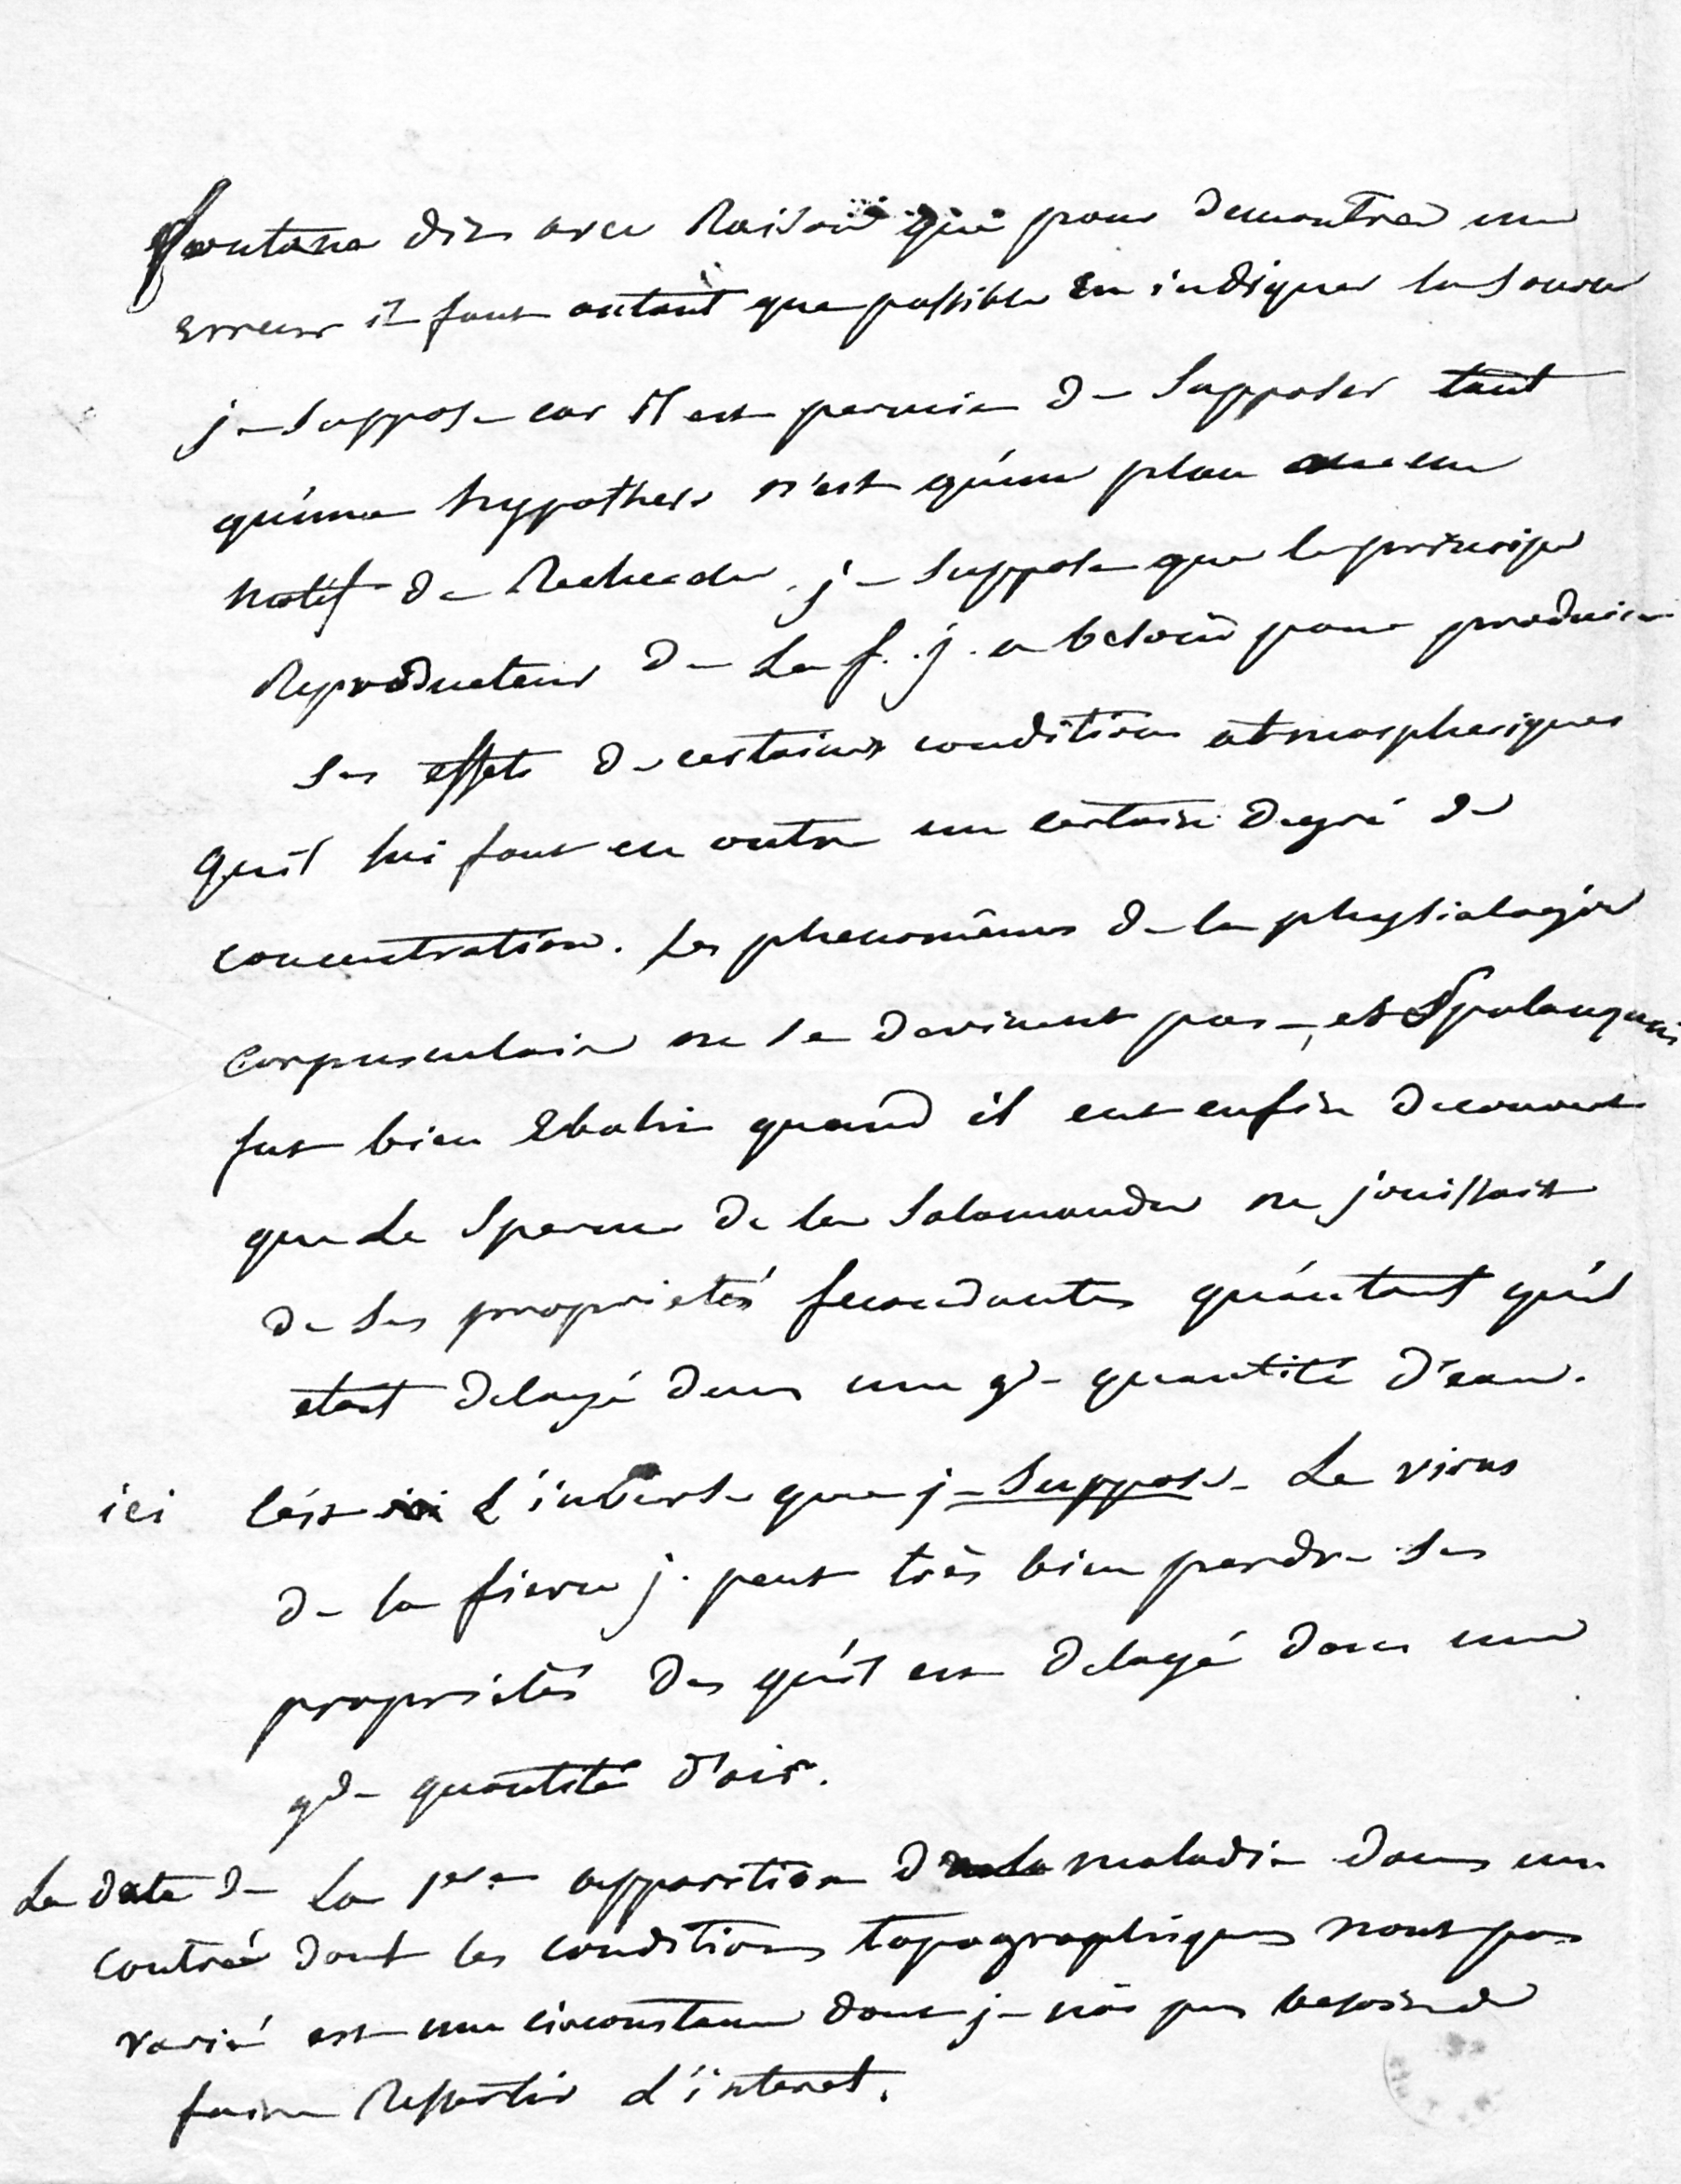 fontana dit avec Raison que pour demontrer une
erreur il faut autant que possible en indiquer la source
je suppose car il est permis de supposer tant
qu'une hypothese n'est qu'un plan ou un
motif de Recherche, je suppose que le principe
Reproducteur de La f. j. a besoin pour produire
ses effets de certaines conditions atmospheriques
qu'il lui faut en outre un certain degré de
concentration. Les phenomênes de la physiologie
corpusculaire ne se devinent pas, et Spalanzani
fut bien Ebahi quand il eut enfin decouvert
que Le Sperme de la Salamandre ne jouissait
de ses proprietés fecondantes qu'autant qu'il
etait delayé dans une gde quantité d'eau.
ici c'est L'inverse que je suppose. Le virus
de la fievre j. peut très bien perdre ses
proprietés des qu'il est delayé dans une
gde quantité d'air.
La date de La 1ere apparition de la maladie dans une
contrée dont les conditions topographiques n'ont pas
varié est une circonstance dont je n'ai pas besoin de
faire Ressortir L'interet.